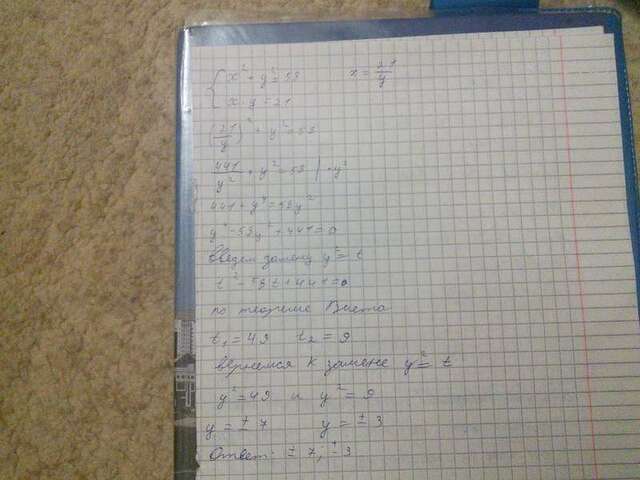 { x² + y² = 58    x = 21/y
x · y = 21
(21/y)² + y² = 58
441/y² + y² = 58 | · y²
441 + y⁴ = 58y²
y⁴ - 58y² + 441 = 0
введем замену y² = t
t² - 58t + 441 = 0
по теореме Виета
t₁ = 49    t₂ = 9
вернемся к замене y² = t
y² = 49 и y² = 9
y = ± 7    y = ± 3
Ответ: ± 7; ± 3